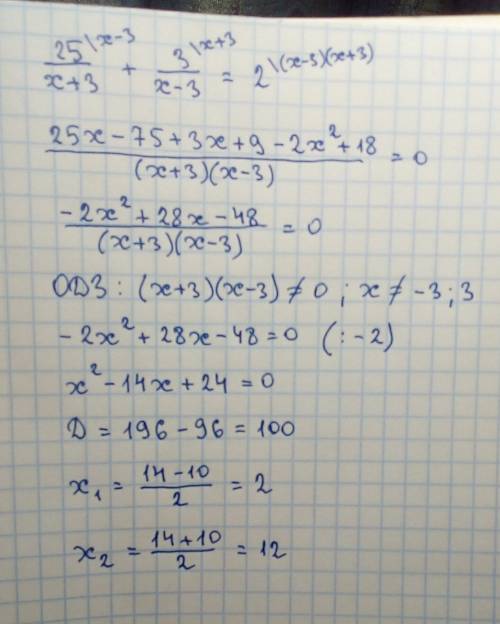 25\x-3 / x+3 + 3\x+3 / x-3 = 2\(x-3)(x+3)
25x - 75 + 3x + 9 - 2x² + 18 / (x+3)(x-3) = 0
-2x² + 28x - 48 / (x+3)(x-3) = 0
ОДЗ : (x+3)(x-3) ≠ 0 ; x ≠ -3 ; 3
-2x² + 28x - 48 = 0 (: -2)
x² - 14x + 24 = 0
D = 196 - 96 = 100
x₁ = 14-10 / 2 = 2
x₂ = 14+10 / 2 = 12